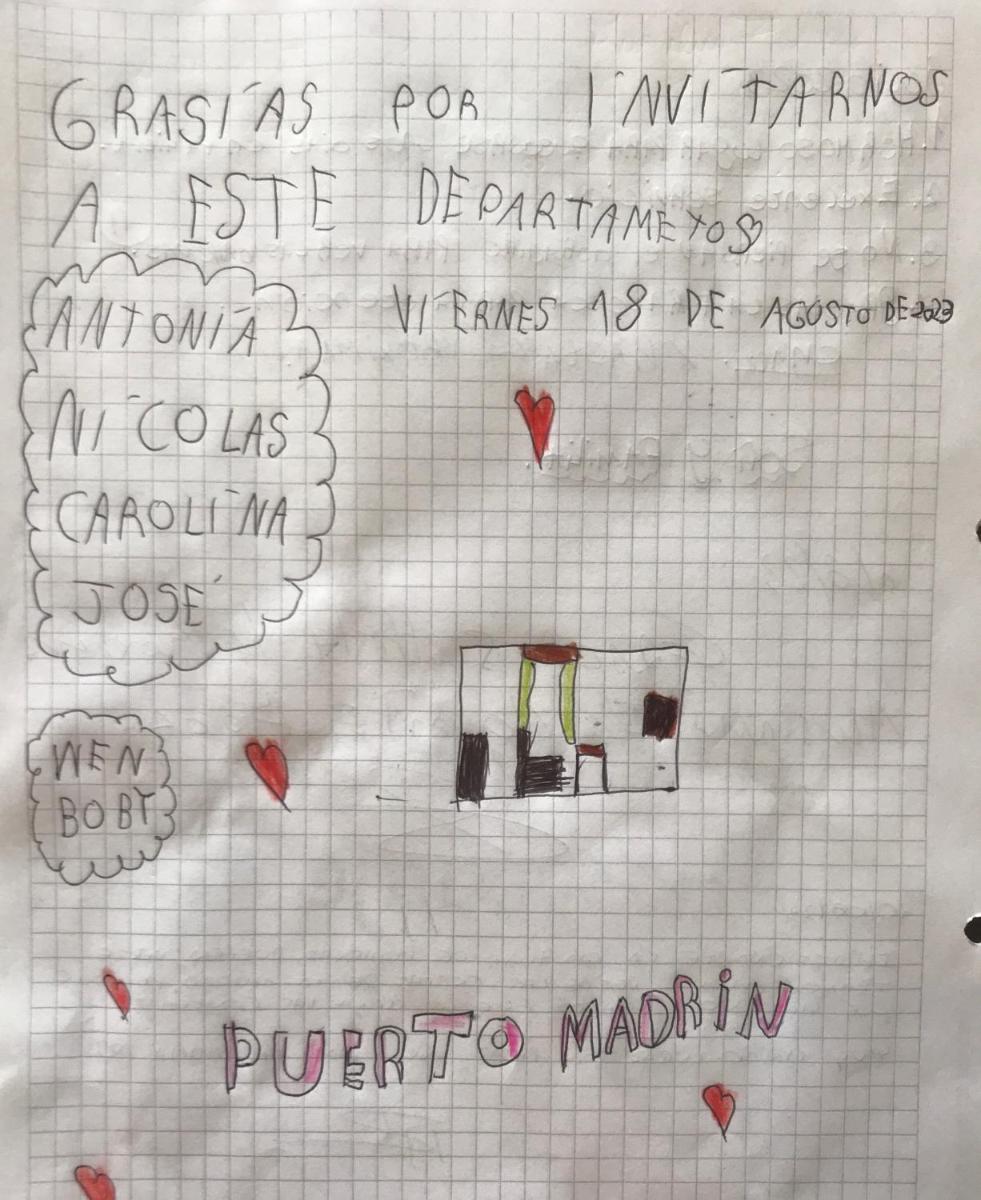 GRASIAS POR INVITARNOS
A ESTE DEPARTAMETOS
VIERNES 18 DE AGOSTO DE 2023
ANTONIA
NICOLAS
CAROLINA
JOSÉ
WEN
BOBY
PUERTO MADRIN